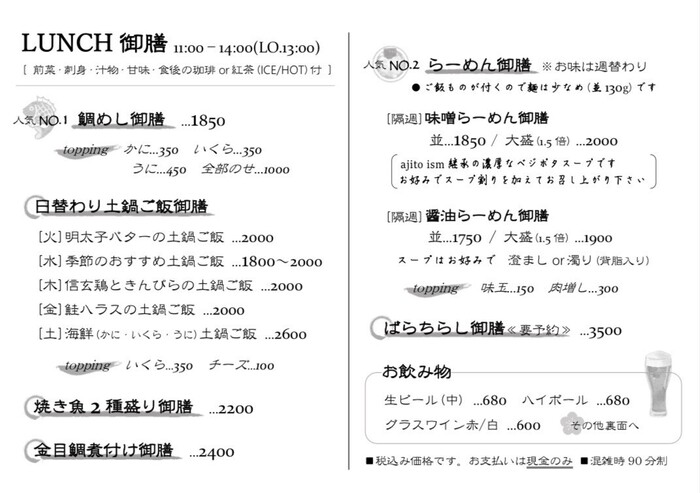 LUNCH 御膳 11:00 – 14:00(LO.13:00)
[ 前菜・刺身・汁物・甘味・食後の珈琲 or 紅茶 (ICE/HOT) 付 ]
人気 NO.1 鯛めし御膳 ...1850
topping かに...350 いくら...350
うに...450 全部のせ...1000
日替わり土鍋ご飯御膳
[火] 明太子バターの土鍋ご飯 ...2000
[水] 季節のおすすめ土鍋ご飯 ...1800〜2000
[木] 信玄鶏ときんぴらの土鍋ご飯 ...2000
[金] 鮭ハラスの土鍋ご飯 ...2000
[土] 海鮮 (かに・いくら・うに) 土鍋ご飯 ...2600
topping いくら...350 チーズ...100
焼き魚 2 種盛り御膳 ...2200
金目鯛煮付け御膳 ...2400
人気 NO.2 らーめん御膳 ※お味は週替わり
●ご飯ものが付くので麺は少なめ (並 130g) です
[隔週] 味噌らーめん御膳
並...1850 / 大盛 (1.5 倍) ...2000
ajito ism 継承の濃厚なベジポタスープです
お好みでスープ割りを加えてお召し上がり下さい
[隔週] 醤油らーめん御膳
並...1750 / 大盛 (1.5 倍) ...1900
スープはお好みで 澄まし or 濁り (背脂入り)
topping 味玉...150 肉増し...300
ばらちらし御膳 ≪要予約≫ ...3500
お飲み物
生ビール (中) ...680 ハイボール ...680
グラスワイン赤/白 ...600 その他裏面へ
■税込み価格です。お支払いは現金のみ ■混雑時 90 分制